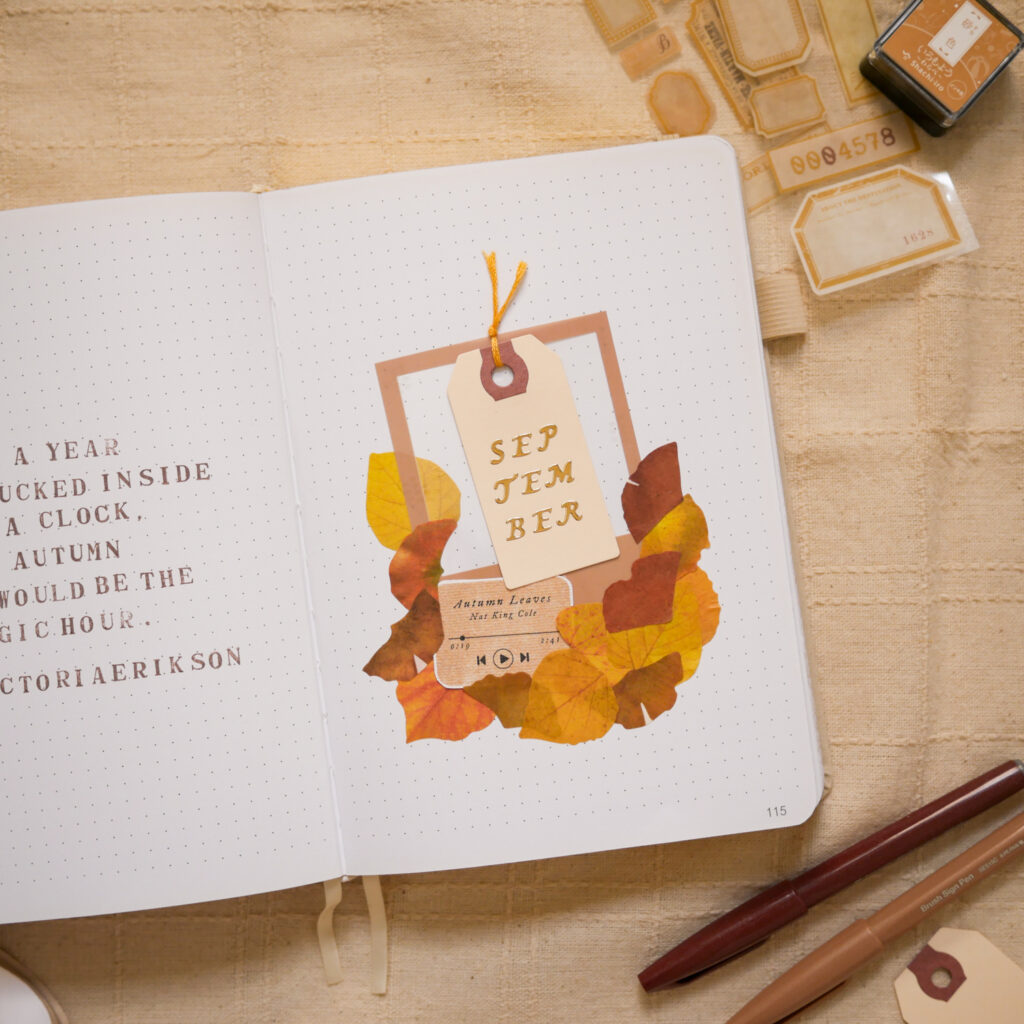 A YEAR
UCKED INSIDE
A CLOCK,
AUTUMN
WOULD BE THE
GIC HOUR.
CTORIA ERIKSON
SEP
TEM
BER
Autumn Leaves
Nat King Cole
0:19 2:41
115
0004578
1628
Brush Sign Pen
Shachihata
砂色
いろもよう